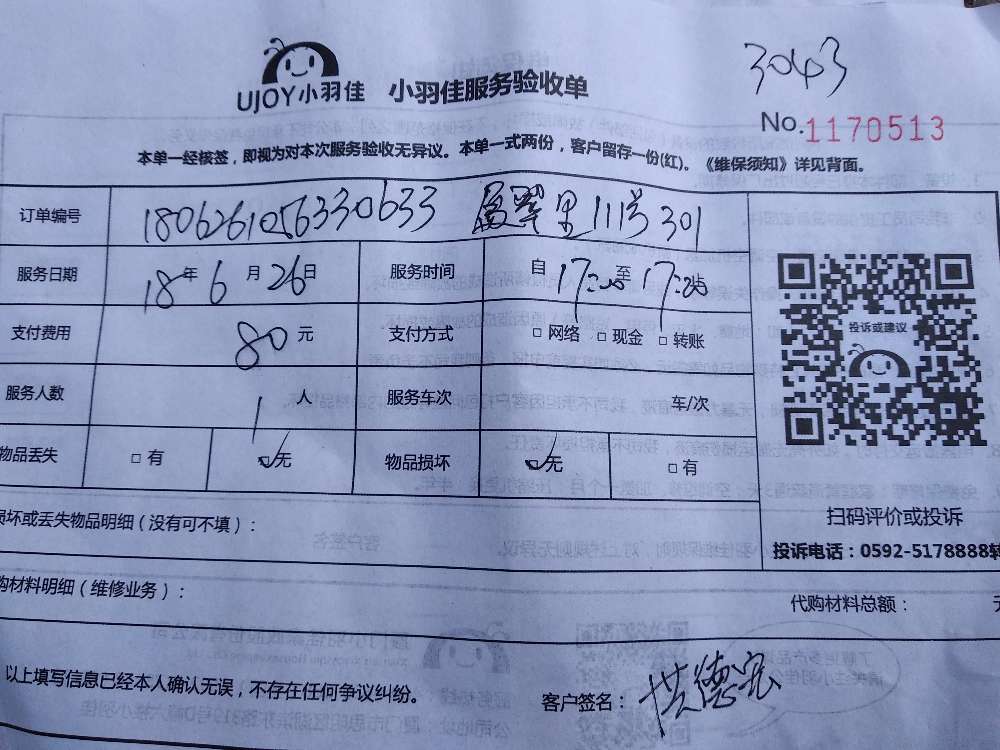 3043
UJOY小羽佳 小羽佳服务验收单
No.1170513
本单一经核签，即视为对本次服务验收无异议。本单一式两份，客户留存一份(红)。《维保须知》详见背面。
订单编号 1806261056330633 翠里111号301
服务日期 18年6月26日 服务时间 自17: 至17:
支付费用 80元 支付方式 □网络 □现金 □转账
服务人数 1人 服务车次 车/次
物品丢失 □有 ☑无 物品损坏 ☑无 □有
投诉或建议
扫码评价或投诉
投诉电话：0592-5178888转
损坏或丢失物品明细（没有可不填）：
购材料明细（维修业务）：
代购材料总额： 元
以上填写信息已经本人确认无误，不存在任何争议纠纷。
客户签名：洪德宏